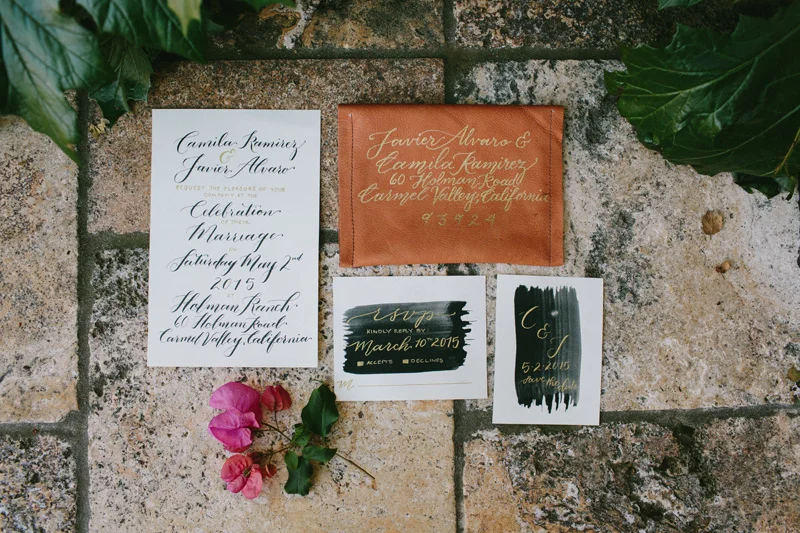 Camila Ramirez
&
Javier Alvaro
REQUEST THE PLEASURE OF YOUR
COMPANY AT THE
Celebration
OF THEIR
Marriage
ON
Saturday May 2nd
2015
AT
Holman Ranch
60 Holman Road
Carmel Valley, California
Javier Alvaro &
Camila Ramirez
60 Holman Road
Carmel Valley, California
93924
rsvp
KINDLY REPLY BY
March 10th 2015
ACCEPTS DECLINES
M
C
& J
5·2·2015
Save the Date